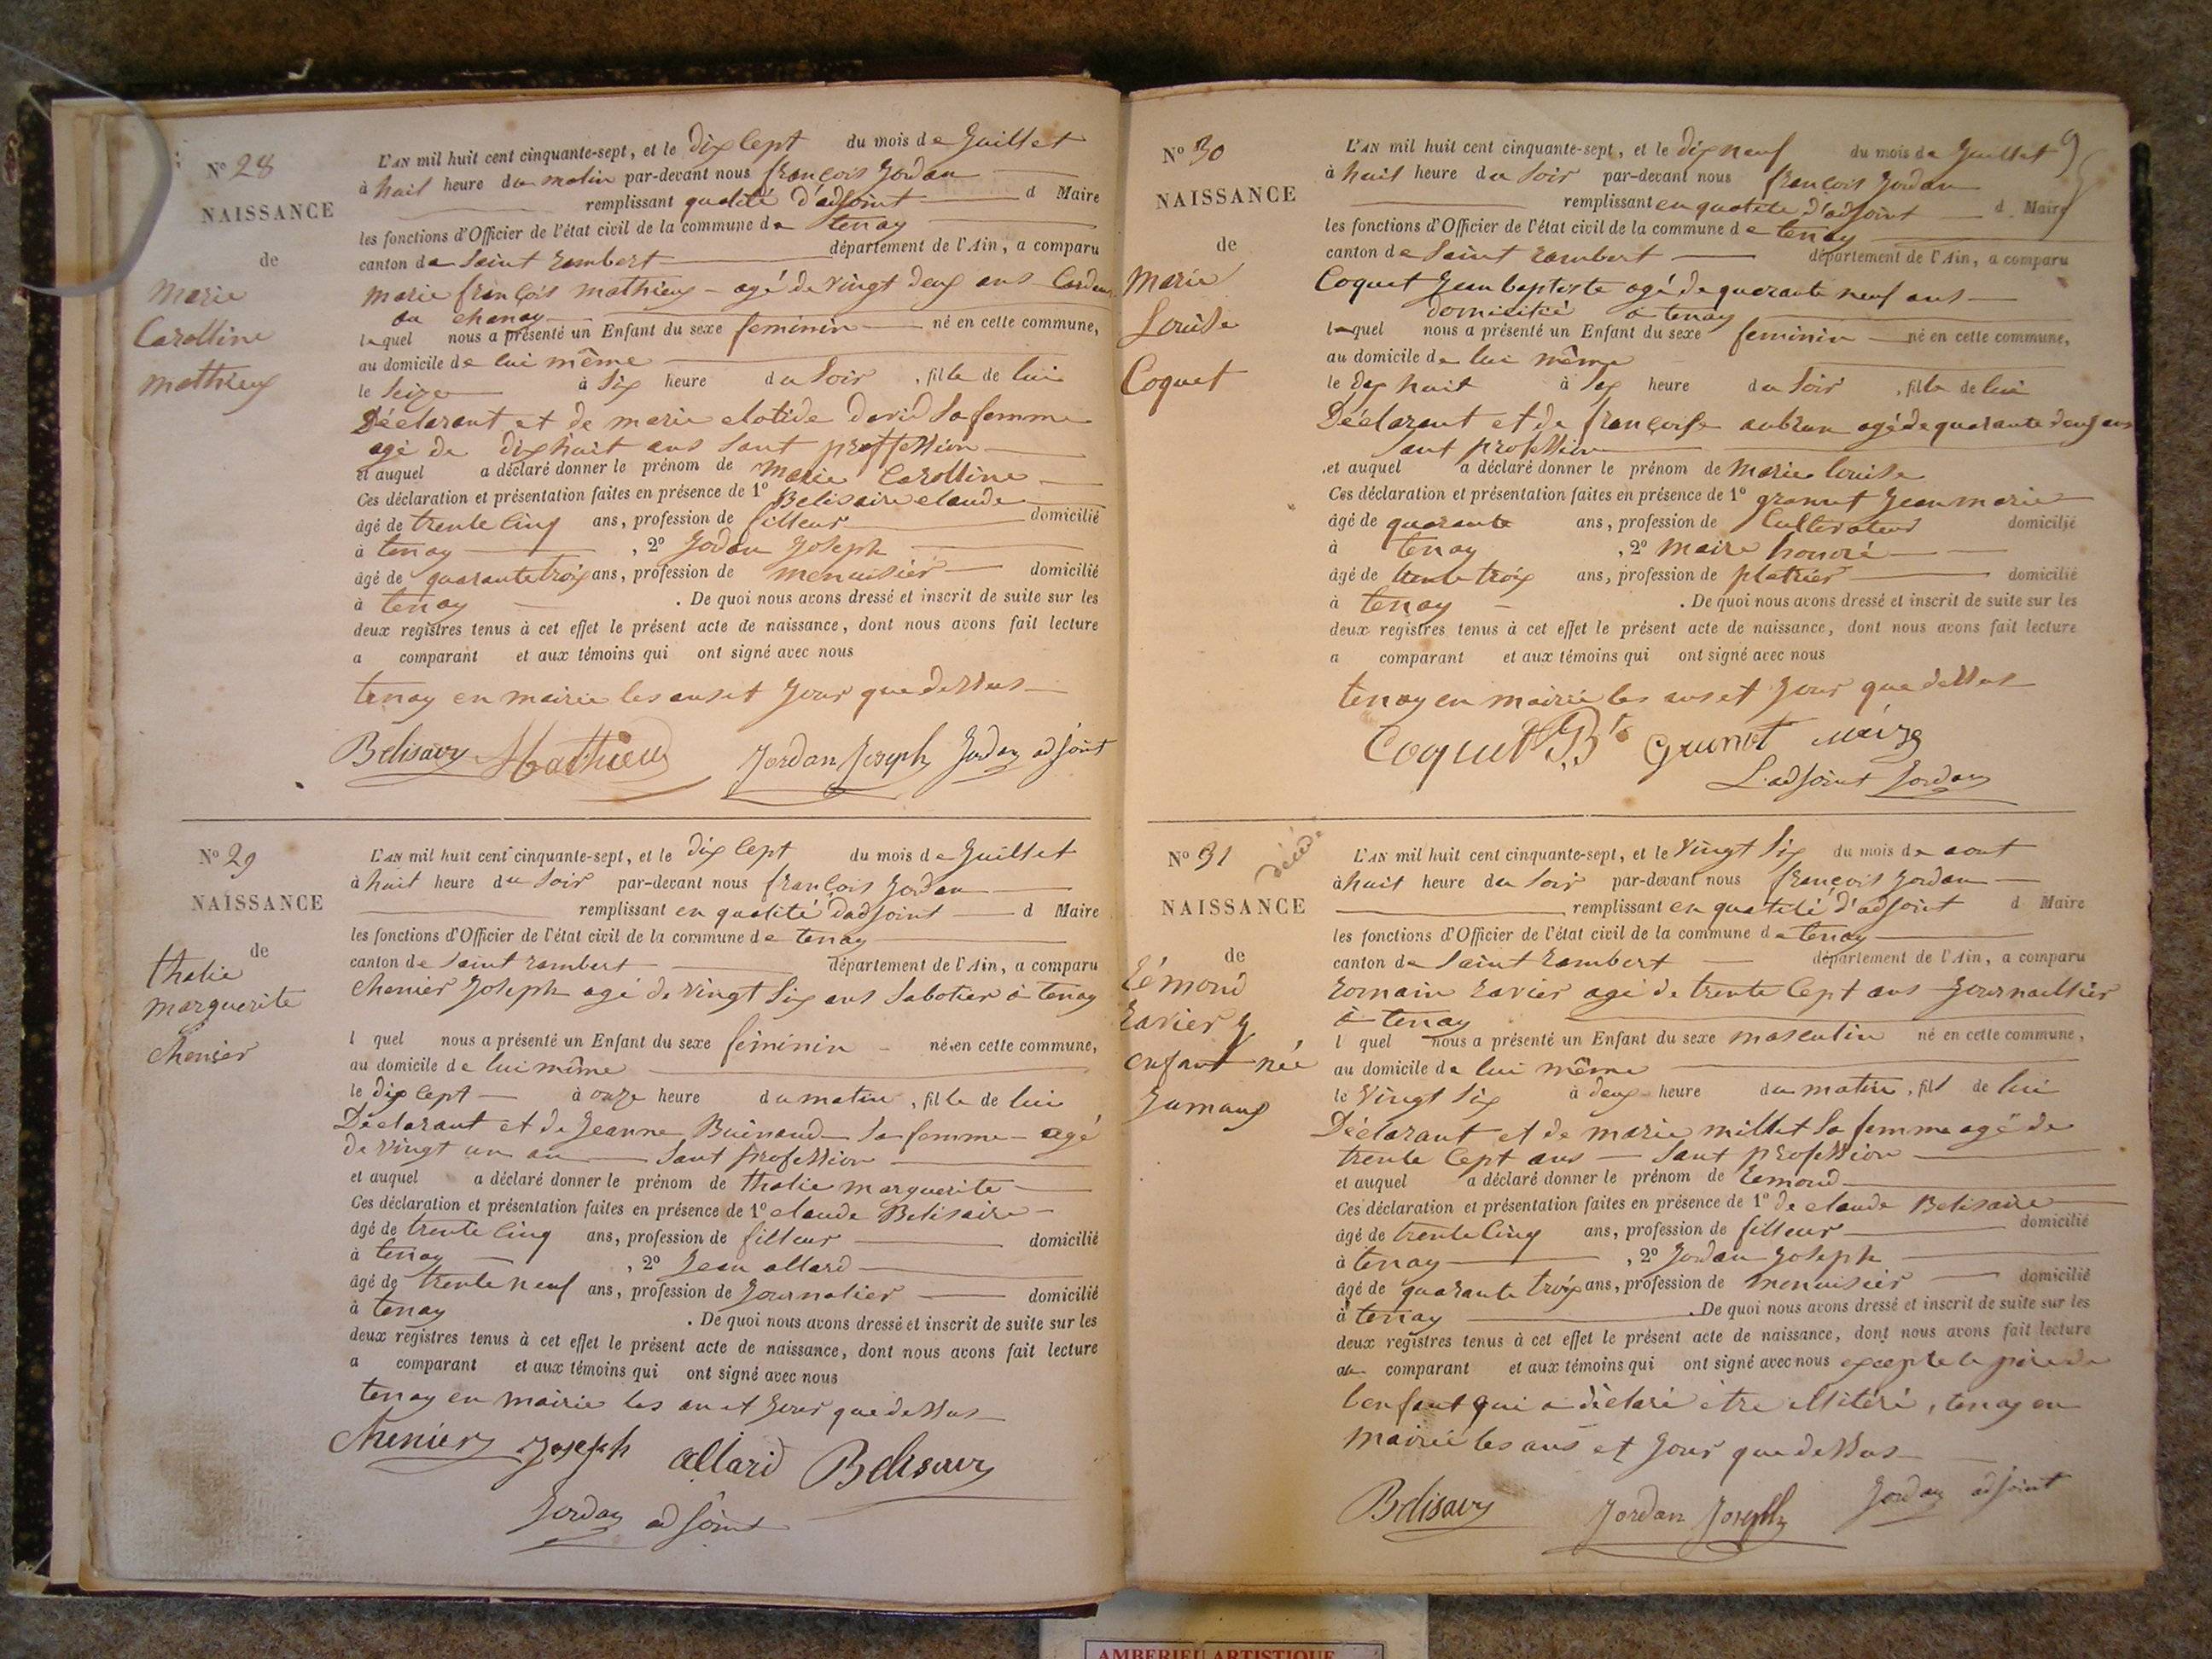 No 28
NAISSANCE
de
Marie
Carolline
Mathieux
L'AN mil huit cent cinquante-sept, et le dix Sept du mois de Juillet
à huit heure du matin par-devant nous françois Jordan
remplissant qualité d'adjoint d Maire
les fonctions d'Officier de l'état civil de la commune de tenay
canton de Saint Rambert département de l'Ain, a comparu
Marie françois Mathieux agé de vingt deux ans Cardeur
au chanay
lequel nous a présenté un Enfant du sexe feminin né en cette commune,
au domicile de lui même
le Seize à Six heure du Soir, fille de lui
Déclarant et de marie clotide david Sa femme
agé de dixhuit ans Sant proffession
et auquel a déclaré donner le prénom de Marie Carolline
Ces déclaration et présentation faites en présence de 1o Belisaire claude
âgé de trente Cinq ans, profession de filleur domicilié
à tenay, 2o Jodan Joseph
âgé de quarante trois ans, profession de menuisier domicilié
à tenay. De quoi nous avons dressé et inscrit de suite sur les
deux registres tenus à cet effet le présent acte de naissance, dont nous avons fait lecture
a comparant et aux témoins qui ont signé avec nous
tenay en mairie les anset Jour que dessus
Belisary Mathieux Jordan Joseph Jordan adjoint
No 29
NAISSANCE
de
thalie
marguerite
chenier
L'AN mil huit cent cinquante-sept, et le dix Sept du mois de Juillet
à huit heure du Soir par-devant nous françois Jordan
remplissant en qualité dadjoint d Maire
les fonctions d'Officier de l'état civil de la commune de tenay
canton de Saint Rambert département de l'Ain, a comparu
Chenier Joseph agé de vingt Six ans Sabotier à Tenay
l quel nous a présenté un Enfant du sexe féminin né en cette commune,
au domicile de lui même
le dix Sept à onze heure du matin, fille de lui
Déclarant et de Jeanne Buinaud Sa femme agé
de vingt un an Sant profession
et auquel a déclaré donner le prénom de thalie marguerite
Ces déclaration et présentation faites en présence de 1o claude Belisaire
âgé de trente Cinq ans, profession de filleur domicilié
à tenay, 2o Jean allard
âgé de trente neuf ans, profession de Journalier domicilié
à tenay. De quoi nous avons dressé et inscrit de suite sur les
deux registres tenus à cet effet le présent acte de naissance, dont nous avons fait lecture
a comparant et aux témoins qui ont signé avec nous
tenay en mairie les an et Jour que dessus
Chenier Joseph allard Belisary
Jordan adjoint
No 30
NAISSANCE
de
Marie
Louise
Coquet
L'AN mil huit cent cinquante-sept, et le dix neuf du mois de Juillet
à huit heure du Soir par-devant nous françois Jordan
remplissant en qualité d'adjoint d Maire
les fonctions d'Officier de l'état civil de la commune de tenay
canton de Saint Rambert département de l'Ain, a comparu
Coquet Jean baptiste agé de quarante neuf ans
domicilié à tenay
lequel nous a présenté un Enfant du sexe feminin né en cette commune,
au domicile de lui même
le dix huit à Six heure du Soir, fille de lui
Déclarant et de françoise aubrun agé de quarante deux ans
Sant profession
et auquel a déclaré donner le prénom de Marie louise
Ces déclaration et présentation faites en présence de 1o Jean marie
âgé de quarante ans, profession de Cultivateur domicilié
à tenay, 2o maire honoré
âgé de trente trois ans, profession de platrier domicilié
à tenay. De quoi nous avons dressé et inscrit de suite sur les
deux registres tenus à cet effet le présent acte de naissance, dont nous avons fait lecture
a comparant et aux témoins qui ont signé avec nous
tenay en mairie les ans et Jour que dessus
Coquet J. Bte
L'adjoint Jordan
No 31
NAISSANCE
de
Rémond
Ravier
enfant née
Jumaux
L'AN mil huit cent cinquante-sept, et le vingt Six du mois de aout
à huit heure du Soir par-devant nous françois Jordan
remplissant en qualité d'adjoint d Maire
les fonctions d'Officier de l'état civil de la commune de tenay
canton de Saint Rambert département de l'Ain, a comparu
Romain Ravier agé de trente Sept ans Journallier
à tenay
l quel nous a présenté un Enfant du sexe masculin né en cette commune,
au domicile de lui même
le Vingt Six à deux heure du matin, fils de lui
Déclarant et de marie millet Sa femme agé de
trente Sept ans Sant profession
et auquel a déclaré donner le prénom de Remond
Ces déclaration et présentation faites en présence de 1o de claude Belisaire
âgé de trente Cinq ans, profession de filleur domicilié
à tenay, 2o Jordan Joseph
âgé de quarante trois ans, profession de menuisier domicilié
à tenay. De quoi nous avons dressé et inscrit de suite sur les
deux registres tenus à cet effet le présent acte de naissance, dont nous avons fait lecture
au comparant et aux témoins qui ont signé avec nous excepte le père de
lenfant qui a déclaré être illitéré, tenay en
mairie les ans et Jour que dessus
Belisary Jordan Joseph Jordan adjoint
AMBERIEU ARTISTIQUE